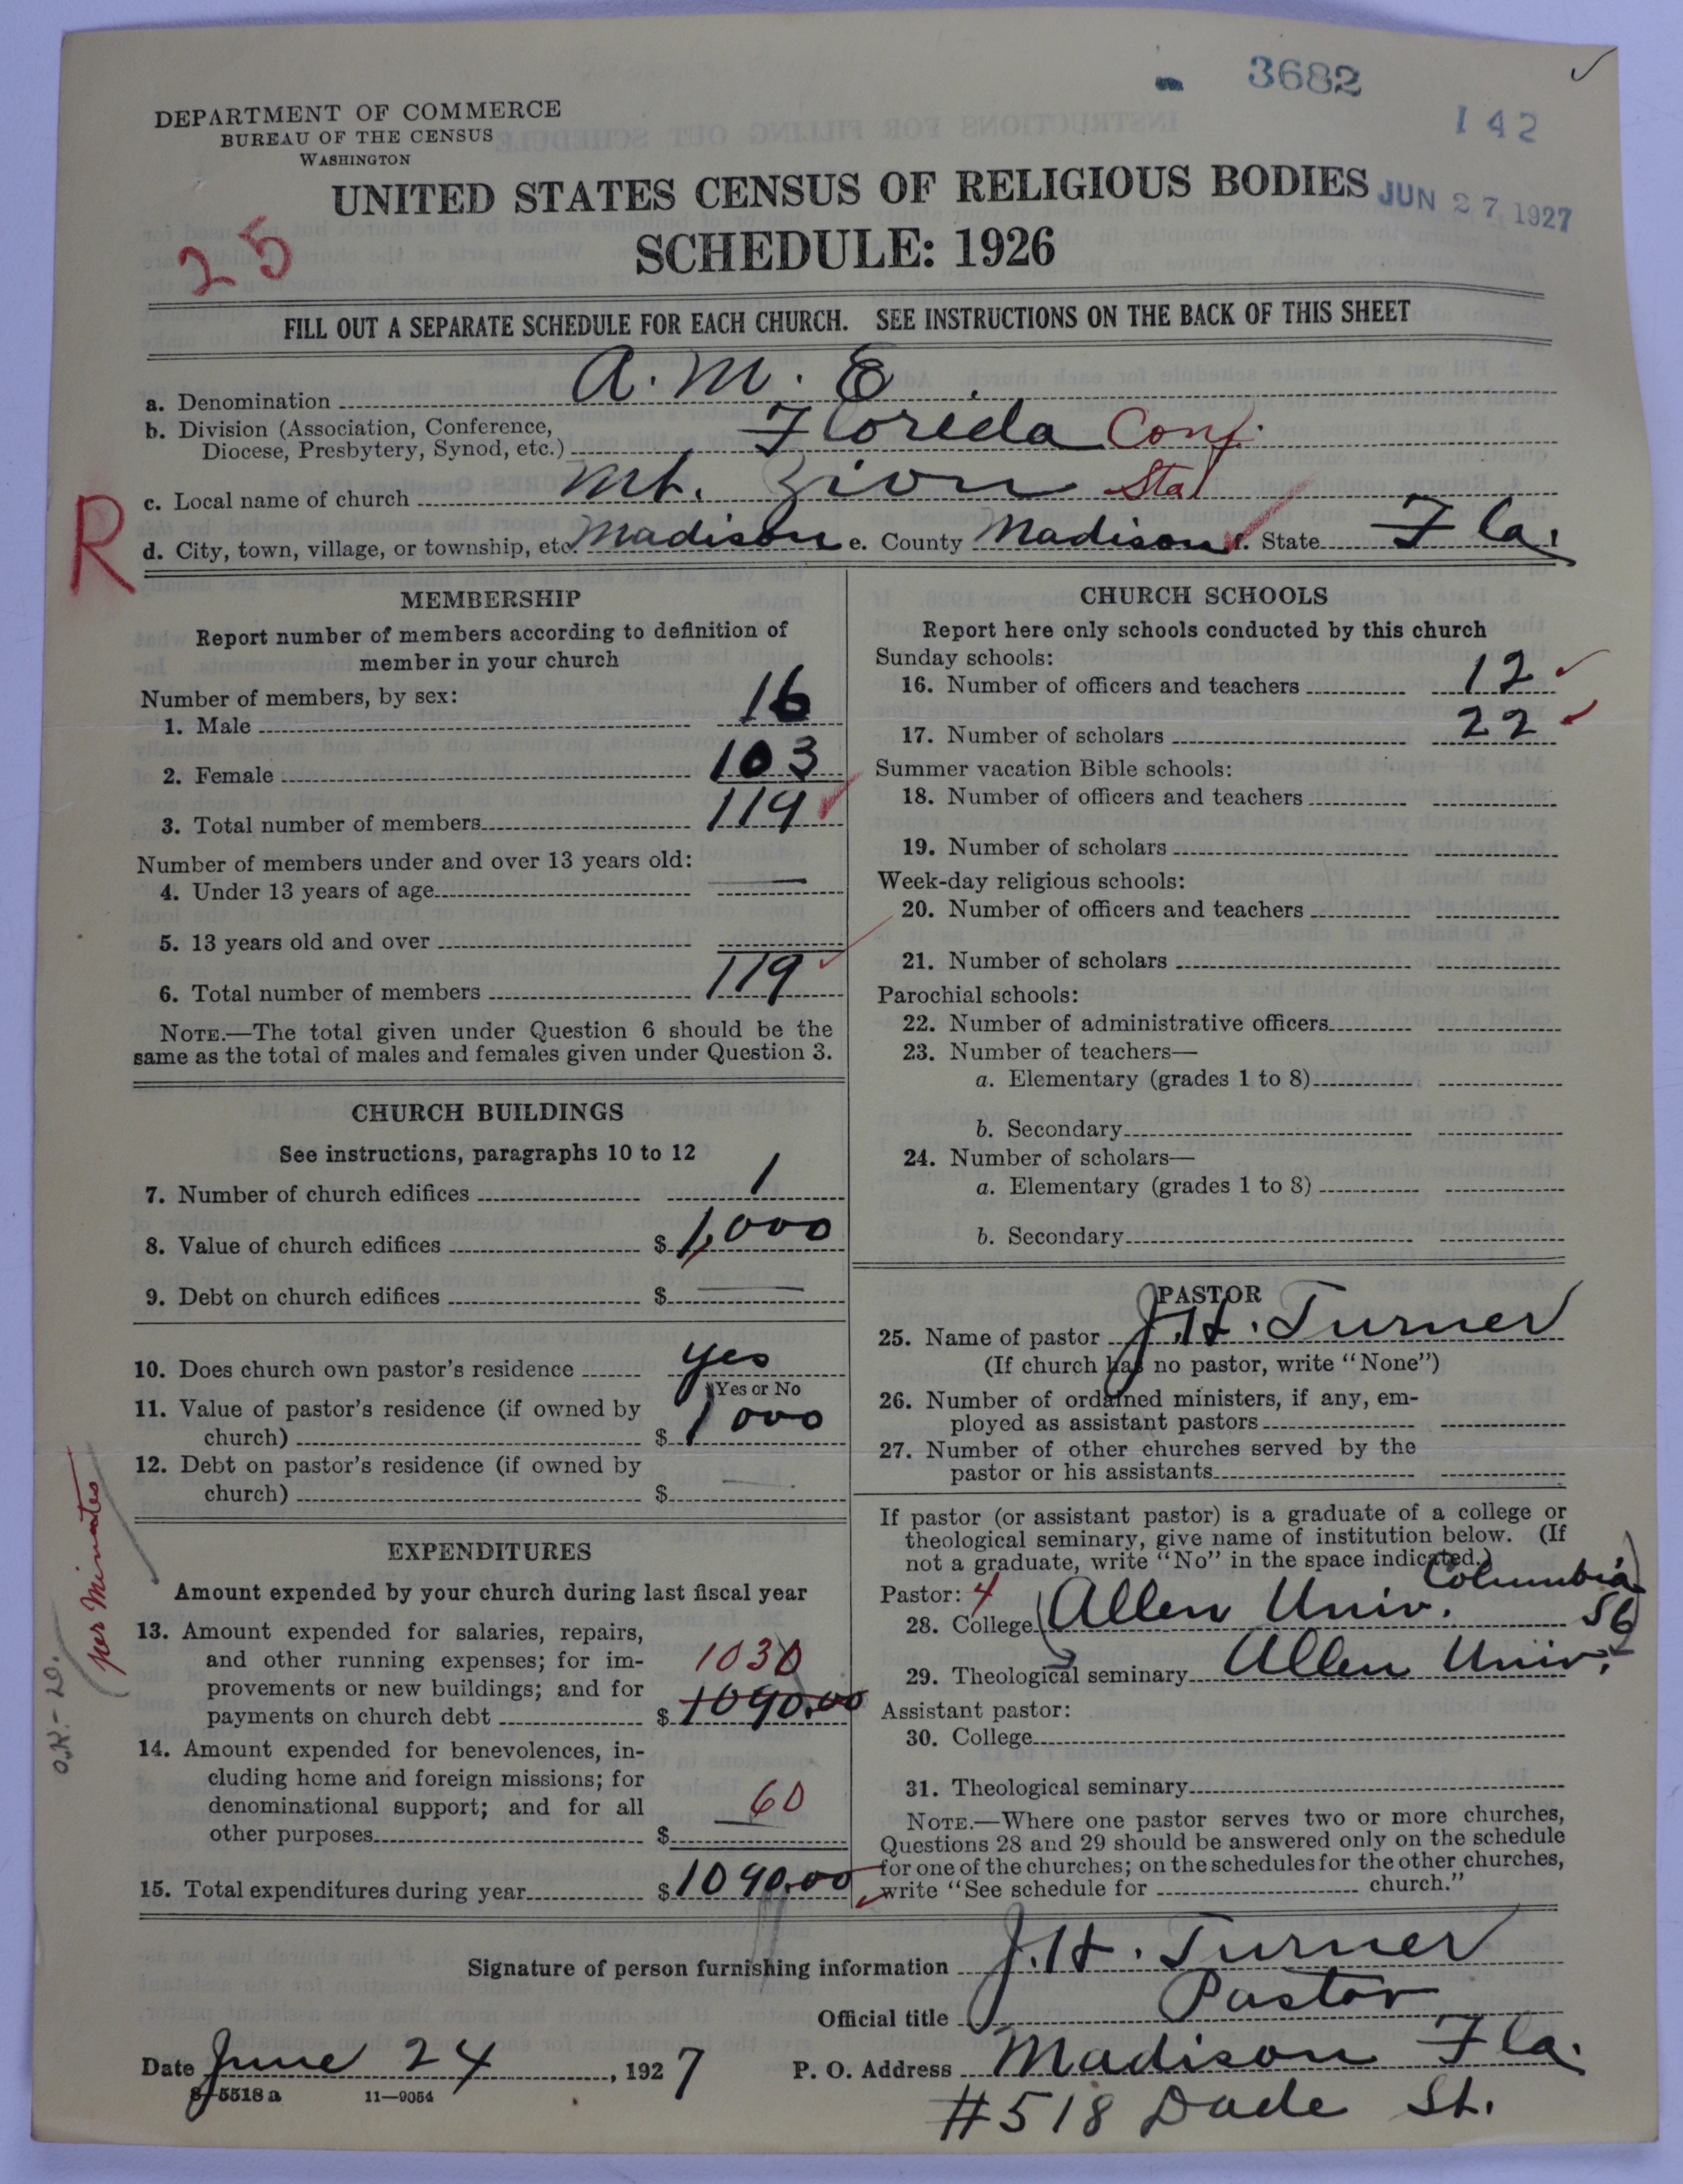 3682
142
DEPARTMENT OF COMMERCE
BUREAU OF THE CENSUS
WASHINGTON
UNITED STATES CENSUS OF RELIGIOUS BODIES
JUN 27 1927
SCHEDULE: 1926
25
FILL OUT A SEPARATE SCHEDULE FOR EACH CHURCH. SEE INSTRUCTIONS ON THE BACK OF THIS SHEET
a. Denomination A. M. E.
b. Division (Association, Conference,
Diocese, Presbytery, Synod, etc.) Floreda Conf.
c. Local name of church Mt. Zion Sta
R
d. City, town, village, or township, etc. Madison e. County Madison f. State Fla.
MEMBERSHIP
Report number of members according to definition of
member in your church
Number of members, by sex:
1. Male 16
2. Female 103
3. Total number of members 119
Number of members under and over 13 years old:
4. Under 13 years of age —
5. 13 years old and over
6. Total number of members 119
NOTE.—The total given under Question 6 should be the
same as the total of males and females given under Question 3.
CHURCH BUILDINGS
See instructions, paragraphs 10 to 12
7. Number of church edifices 1
8. Value of church edifices $ 1,000
9. Debt on church edifices $ —
10. Does church own pastor's residence yes
Yes or No
11. Value of pastor's residence (if owned by
church) $ 1000
12. Debt on pastor's residence (if owned by
church) $ —
EXPENDITURES
Amount expended by your church during last fiscal year
13. Amount expended for salaries, repairs,
and other running expenses; for im-
provements or new buildings; and for
payments on church debt $ 1090.00
1030
14. Amount expended for benevolences, in-
cluding home and foreign missions; for
denominational support; and for all
other purposes $ 60
15. Total expenditures during year $ 1090.00
per Minutes
O.K.
CHURCH SCHOOLS
Report here only schools conducted by this church
Sunday schools:
16. Number of officers and teachers 12
17. Number of scholars 22
Summer vacation Bible schools:
18. Number of officers and teachers
19. Number of scholars
Week-day religious schools:
20. Number of officers and teachers
21. Number of scholars
Parochial schools:
22. Number of administrative officers
23. Number of teachers—
a. Elementary (grades 1 to 8)
b. Secondary
24. Number of scholars—
a. Elementary (grades 1 to 8)
b. Secondary
PASTOR
25. Name of pastor J. H. Turner
(If church has no pastor, write "None")
26. Number of ordained ministers, if any, em-
ployed as assistant pastors
27. Number of other churches served by the
pastor or his assistants
If pastor (or assistant pastor) is a graduate of a college or
theological seminary, give name of institution below. (If
not a graduate, write "No" in the space indicated.)
Pastor: 4 Columbia
28. College Allen Univ.
29. Theological seminary Allen Univ.
Assistant pastor:
30. College
31. Theological seminary
NOTE.—Where one pastor serves two or more churches,
Questions 28 and 29 should be answered only on the schedule
for one of the churches; on the schedules for the other churches,
write "See schedule for church."
Signature of person furnishing information J. H. Turner
Official title Pastor
Date June 24, 1927 P. O. Address Madison Fla.
8-5518 a 11—9054
#518 Dade St.